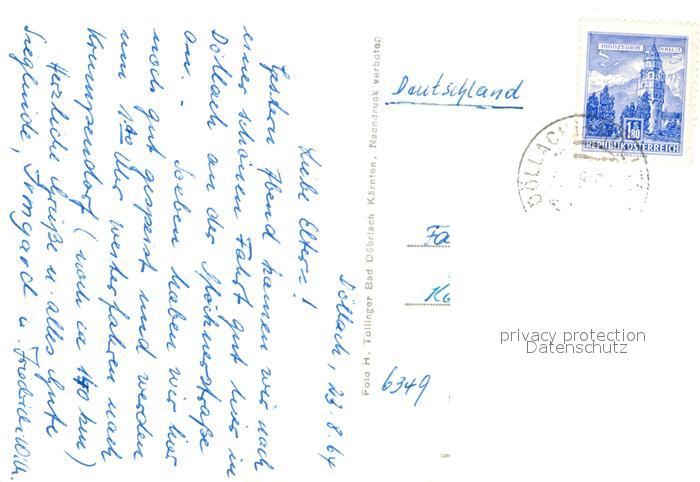 Döllach, 23.8.64
Liebe Eltern!
Gestern Abend kamen wir nach
einer schönen Fahrt gut hier in
Döllach an der Glocknerstraße
an. - Soeben haben wir hier
noch gut gespeist und werden
um 1°° Uhr weiterfahren nach
Krumpendorf (noch ca 140 km)
Herzliche Grüße u. alles Gute
Sieglinde, Irmgard u. Friedrich Wilh.
Foto H. Tollinger Bad Döbriach Kärnten. Nachdruck verboten
Deutschland
Fa
Ko
6349
MÜNZTURM HALL i. T.
S 1.80
REPUBLIK ÖSTERREICH
DÖLLACH
privacy protection
Datenschutz